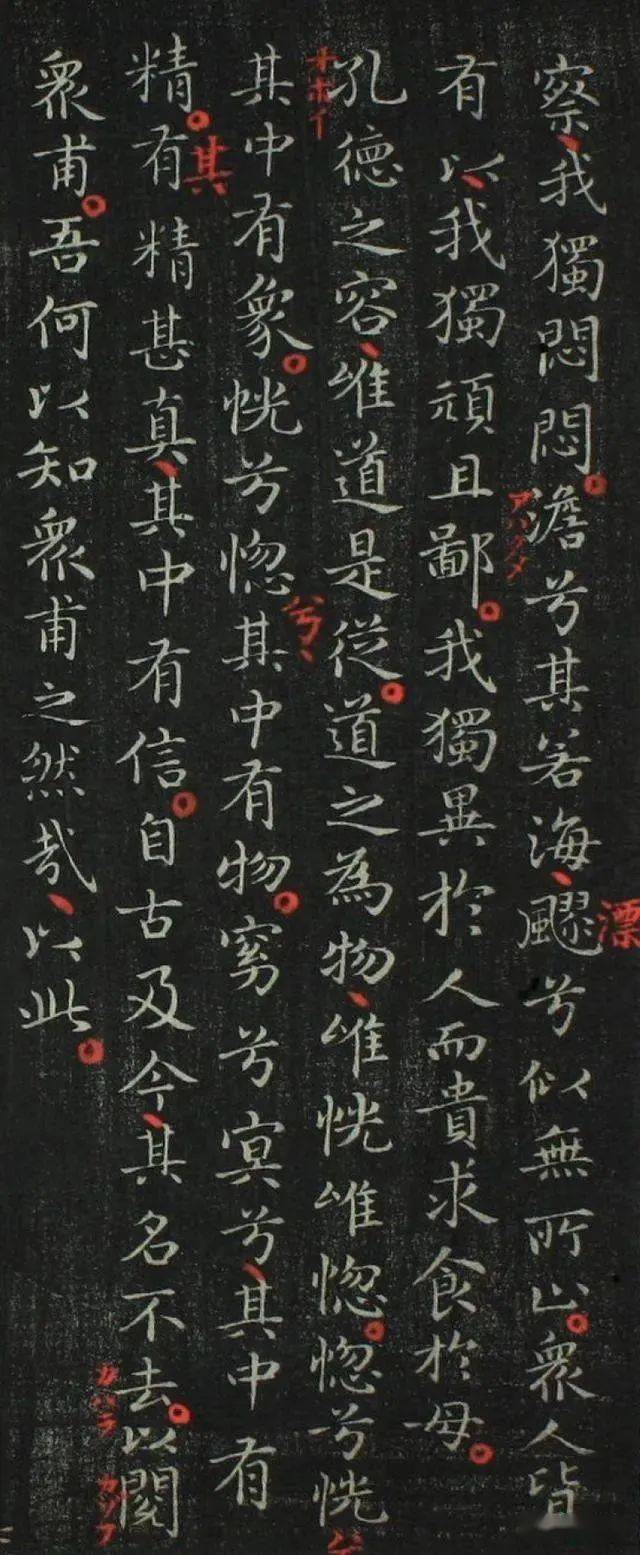 察、我獨悶悶。澹兮其若海、飂兮似無所止。衆人皆
有以、我獨頑且鄙。我獨異於人而貴求食於母。
孔德之容、唯道是從。道之為物、唯恍唯惚。惚兮恍
其中有象。恍兮惚其中有物。窈兮冥兮、其中有
精。有精甚真、其中有信。自古及今、其名不去。以閱
衆甫。吾何以知衆甫之然哉、以此。
アハクメ
漂
兮、
兮
其